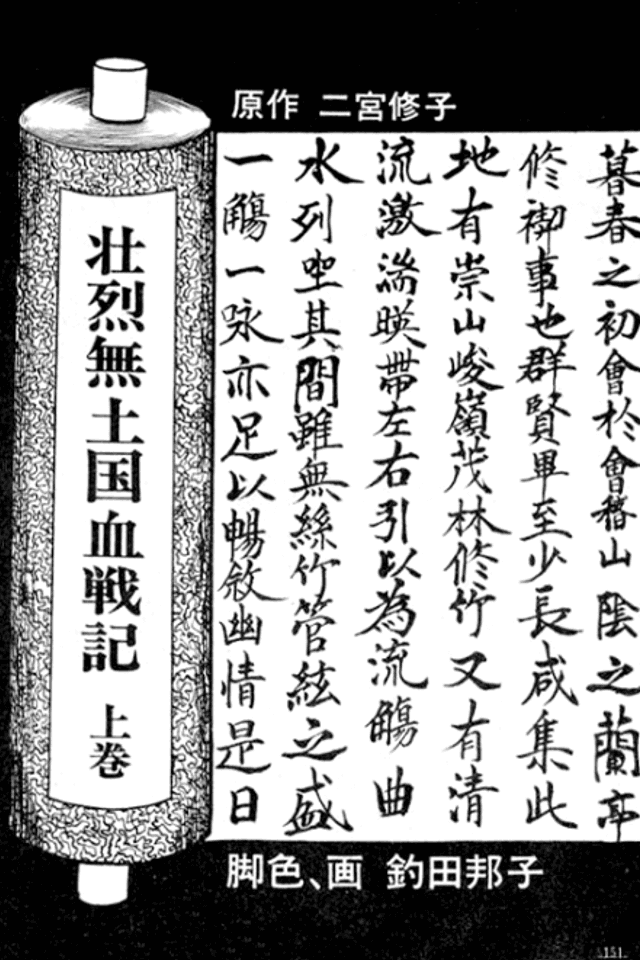 原作 二宮修子
暮春之初會於會稽山陰之蘭亭
修禊事也群賢畢至少長咸集此
地有崇山峻嶺茂林修竹又有清
流激湍暎帶左右引以為流觴曲
水列坐其間雖無絲竹管絃之盛
一觴一詠亦足以暢敘幽情是日
壮烈無土国血戦記 上巻
脚色、画 釣田邦子
151